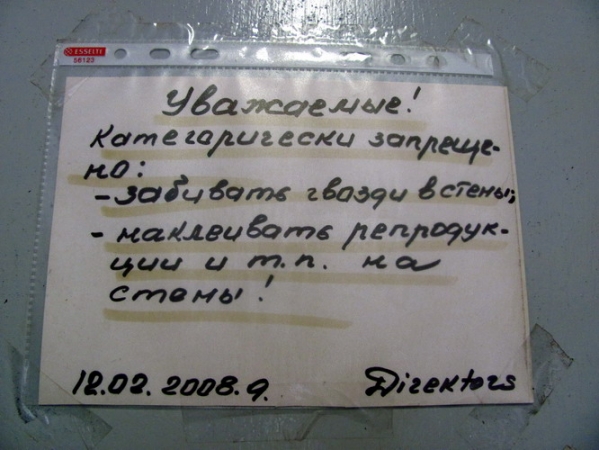 ESSELTE
56122
Уважаемые!
Категарически запреще-
но:
- забивать гвозди в стены;
- наклеивать репродук-
ции и т.п. на
стены!
12.02.2008.g. Direktors